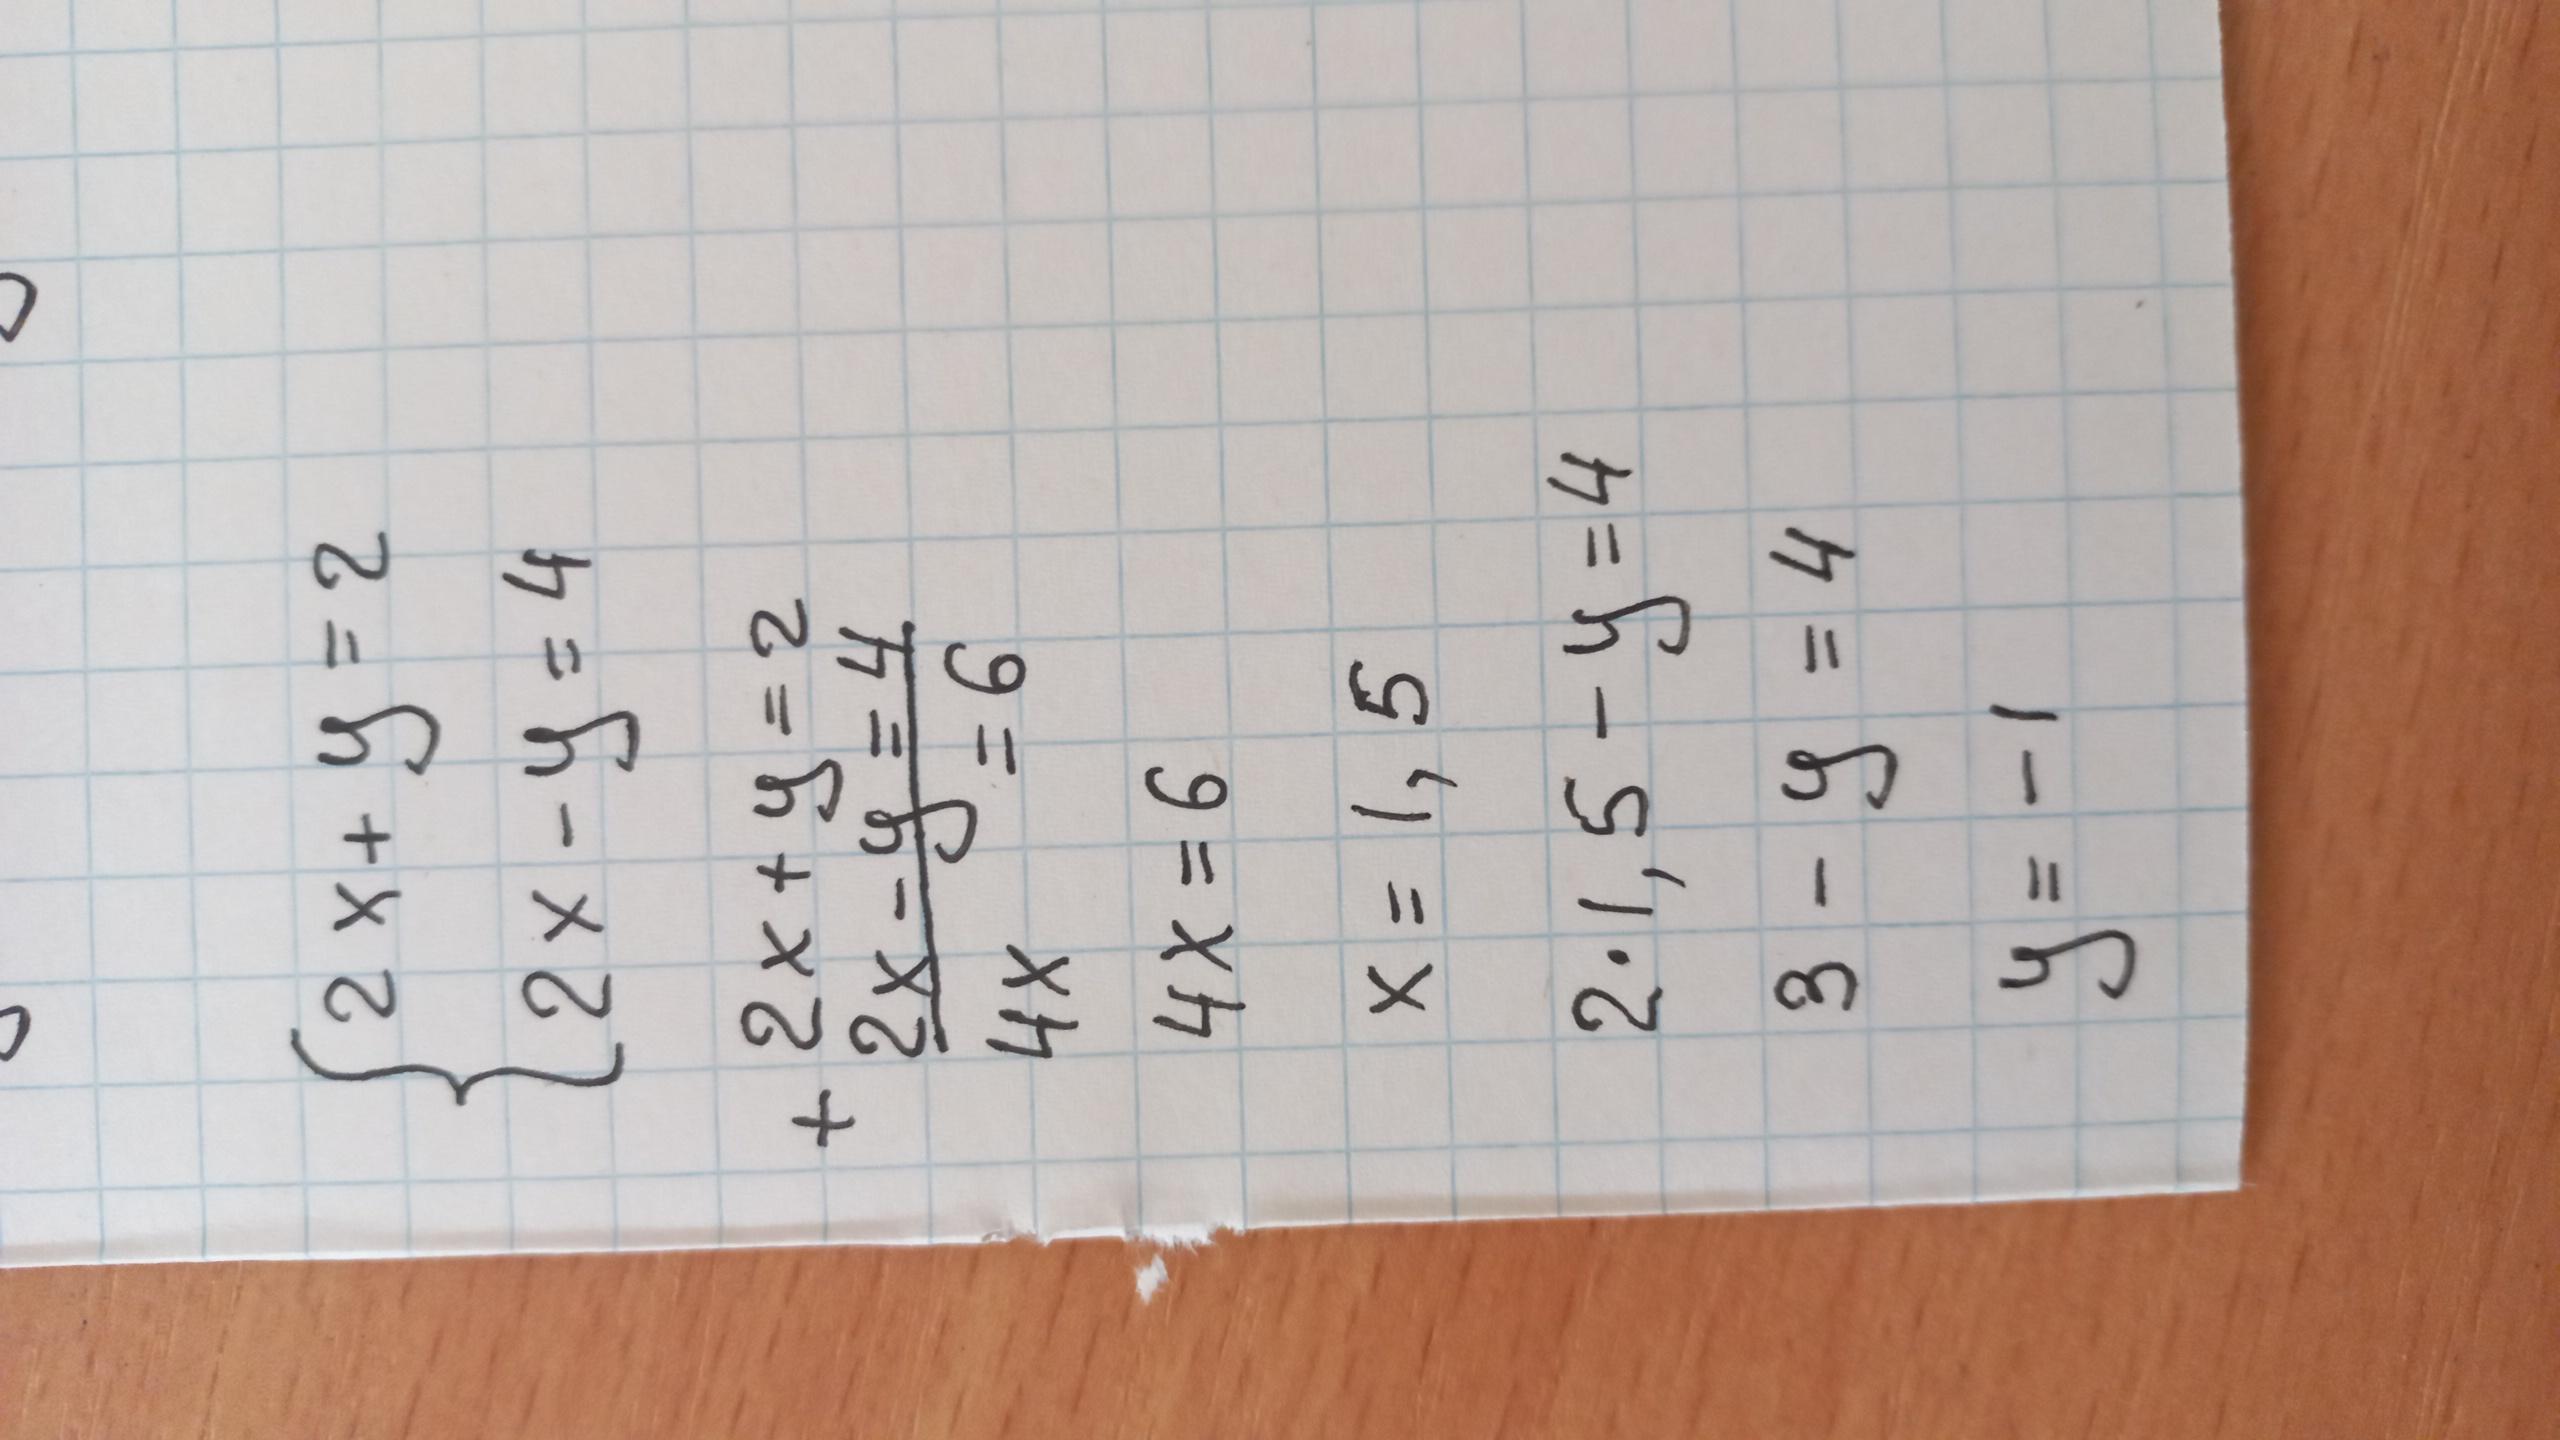 { 2x + y = 2
2x - y = 4
+ 2x + y = 2
2x - y = 4
4x = 6
4x = 6
x = 1,5
2 · 1,5 - y = 4
3 - y = 4
y = -1